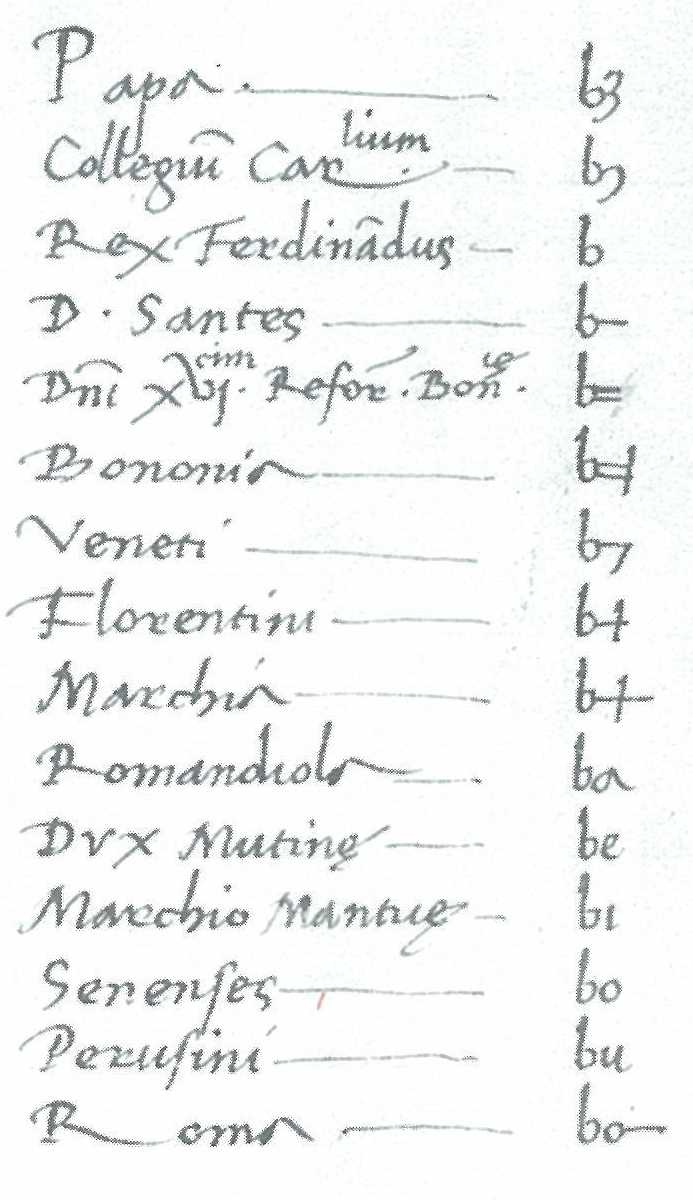 Papa . — b3
Collegiū Car.lium — b
Rex Ferdinādus — b
D . Santes — b–
Dn̄i xvj.cim Refor . Bon.ie . b=
Bononia — b
Veneti — b
Florentini — b
Marchia — b
Romandiola — ba
Dvx Mutinę — be
Marchio Mantuę — bi
Senenses — bo
Perusini — bu
Roma — bo–